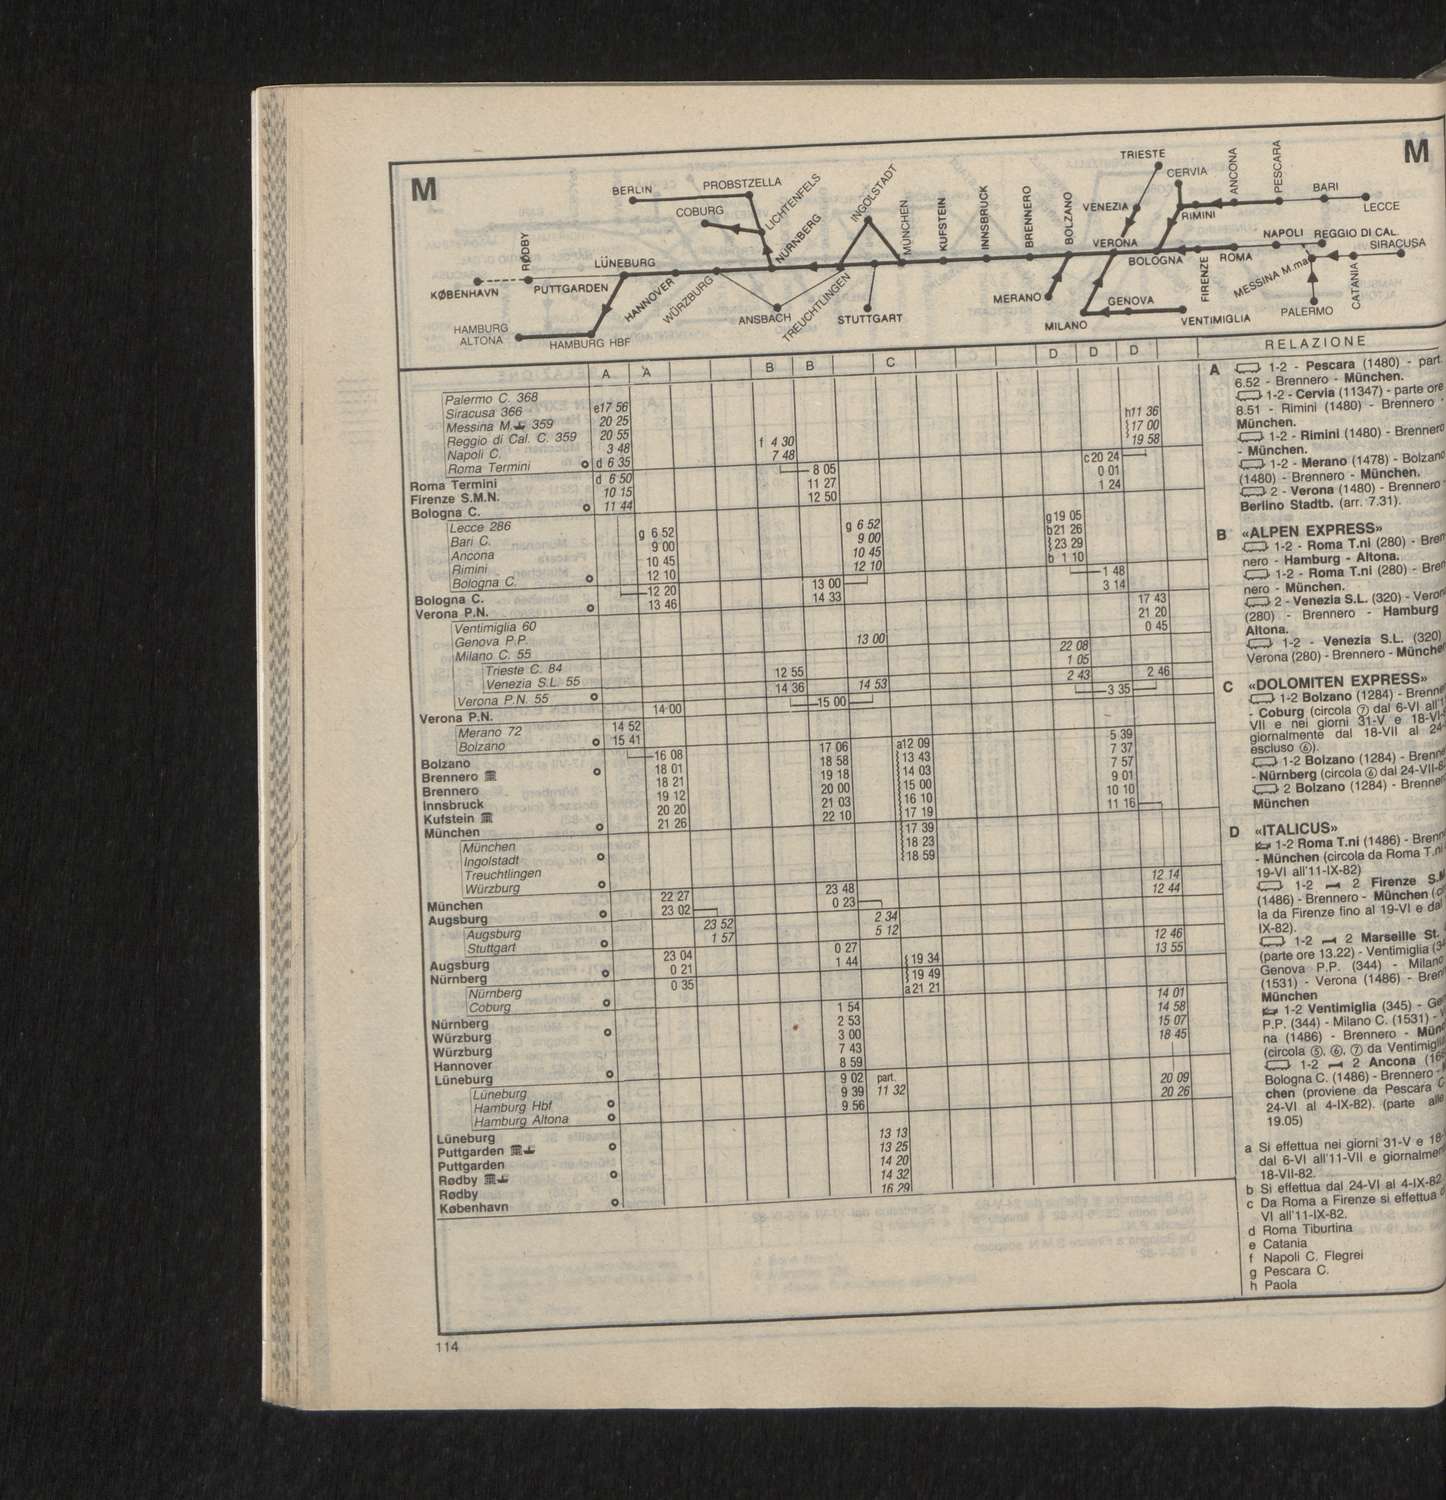 M
M
TRIESTE
CERVIA
ANCONA
PESCARA
BERLIN
PROBSTZELLA
LICHTENFELS
INGOLSTADT
BARI
LECCE
COBURG
NÜRNBERG
MÜNCHEN
KUFSTEIN
INNSBRUCK
BRENNERO
BOLZANO
VENEZIA
RIMINI
VERONA
NAPOLI
REGGIO DI CAL.
SIRACUSA
RØDBY
LÜNEBURG
BOLOGNA
FIRENZE
ROMA
MESSINA M.ma
CATANIA
KØBENHAVN
PUTTGARDEN
HANNOVER
WÜRZBURG
ANSBACH
TREUCHTLINGEN
STUTTGART
MERANO
GENOVA
MILANO
VENTIMIGLIA
PALERMO
HAMBURG
ALTONA
HAMBURG HBF
A A B B C D D D
Palermo C. 368
Siracusa 366 e17 56 h11 36
Messina M. 359 20 25 17 00
Reggio di Cal. C. 359 20 55 f 4 30 19 58
Napoli C. 3 48 7 48 c20 24
Roma Termini d 6 35 8 05 0 01
Roma Termini d 6 50 11 27 1 24
Firenze S.M.N. 10 15 12 50
Bologna C. 11 44
Lecce 286 g19 05
Bari C. g 6 52 g 6 52 b21 26
Ancona 9 00 9 00 23 29
Rimini 10 45 10 45 b 1 10
Bologna C. 12 10 12 10 1 48
Bologna C. 12 20 13 00 3 14
Verona P.N. 13 46 14 33 17 43
Ventimiglia 60 21 20
Genova P.P. 13 00 0 45
Milano C. 55 22 08
Trieste C. 84 12 55 1 05
Venezia S.L. 55 14 36 14 53 2 43 2 46
Verona P.N. 55 15 00 3 35
Verona P.N. 14 00
Merano 72 14 52
Bolzano 15 41 5 39
Bolzano 16 08 17 06 a12 09 7 37
Brennero 18 01 18 58 13 43 7 57
Brennero 18 21 19 18 14 03 9 01
Innsbruck 19 12 20 00 15 00 10 10
Kufstein 20 20 21 03 16 10 11 16
München 21 26 22 10 17 19
München 17 39
Ingolstadt 18 23
Treuchtlingen 18 59
Würzburg 12 14
München 22 27 23 48 12 44
Augsburg 23 02 0 23
Augsburg 23 52 2 34
Stuttgart 1 57 5 12 12 46
Augsburg 23 04 0 27 13 55
Nürnberg 0 21 1 44 19 34
Nürnberg 0 35 19 49
Coburg a21 21 14 01
Nürnberg 1 54 14 58
Würzburg 2 53 15 07
Würzburg 3 00 18 45
Hannover 7 43
Lüneburg 8 59
Lüneburg 9 02 part. 20 09
Hamburg Hbf 9 39 11 32 20 26
Hamburg Altona 9 56
Lüneburg
Puttgarden 13 13
Puttgarden 13 25
Rødby 14 20
Rødby 14 32
København 16 29
RELAZIONE
A 1-2 - Pescara (1480) - part
6.52 - Brennero - München.
1-2 - Cervia (11347) - parte ore
8.51 - Rimini (1480) - Brennero -
München.
1-2 - Rimini (1480) - Brennero
- München.
1-2 - Merano (1478) - Bolzano
(1480) - Brennero - München.
2 - Verona (1480) - Brennero -
Berlino Stadtb. (arr. 7.31).
B «ALPEN EXPRESS»
1-2 - Roma T.ni (280) - Bren
nero - Hamburg - Altona.
1-2 - Roma T.ni (280) - Bren
nero - München.
2 - Venezia S.L. (320) - Veron
(280) - Brennero - Hamburg
Altona.
1-2 - Venezia S.L. (320)
Verona (280) - Brennero - München
C «DOLOMITEN EXPRESS»
1-2 Bolzano (1284) - Brenne
- Coburg (circola ⑦ dal 6-VI all'1
VII e nei giorni 31-V e 18-VI
giornalmente dal 18-VII al 24-
escluso ⑥).
1-2 Bolzano (1284) - Brenne
- Nürnberg (circola ⑥ dal 24-VII-8
2 Bolzano (1284) - Brenne
München
D «ITALICUS»
1-2 Roma T.ni (1486) - Brenn
- München (circola da Roma T.n
19-VI all'11-IX-82)
1-2 2 Firenze S.M
(1486) - Brennero - München (c
la da Firenze fino al 19-VI e dal
IX-82).
1-2 2 Marseille St.
(parte ore 13.22) - Ventimiglia (3
Genova P.P. (344) - Milano
(1531) - Verona (1486) - Bren
München
1-2 Ventimiglia (345) - Ge
P.P. (344) - Milano C. (1531) -
na (1486) - Brennero - Mün
(circola ⑤, ⑥, ⑦ da Ventimigl
1-2 2 Ancona (16
Bologna C. (1486) - Brennero -
chen (proviene da Pescara C
24-VI al 4-IX-82). (parte alle
19.05)
a Si effettua nei giorni 31-V e 18-
dal 6-VI all'11-VII e giornalmen
18-VII-82.
b Si effettua dal 24-VI al 4-IX-82
c Da Roma a Firenze si effettua
VI all'11-IX-82.
d Roma Tiburtina
e Catania
f Napoli C. Flegrei
g Pescara C.
h Paola
114